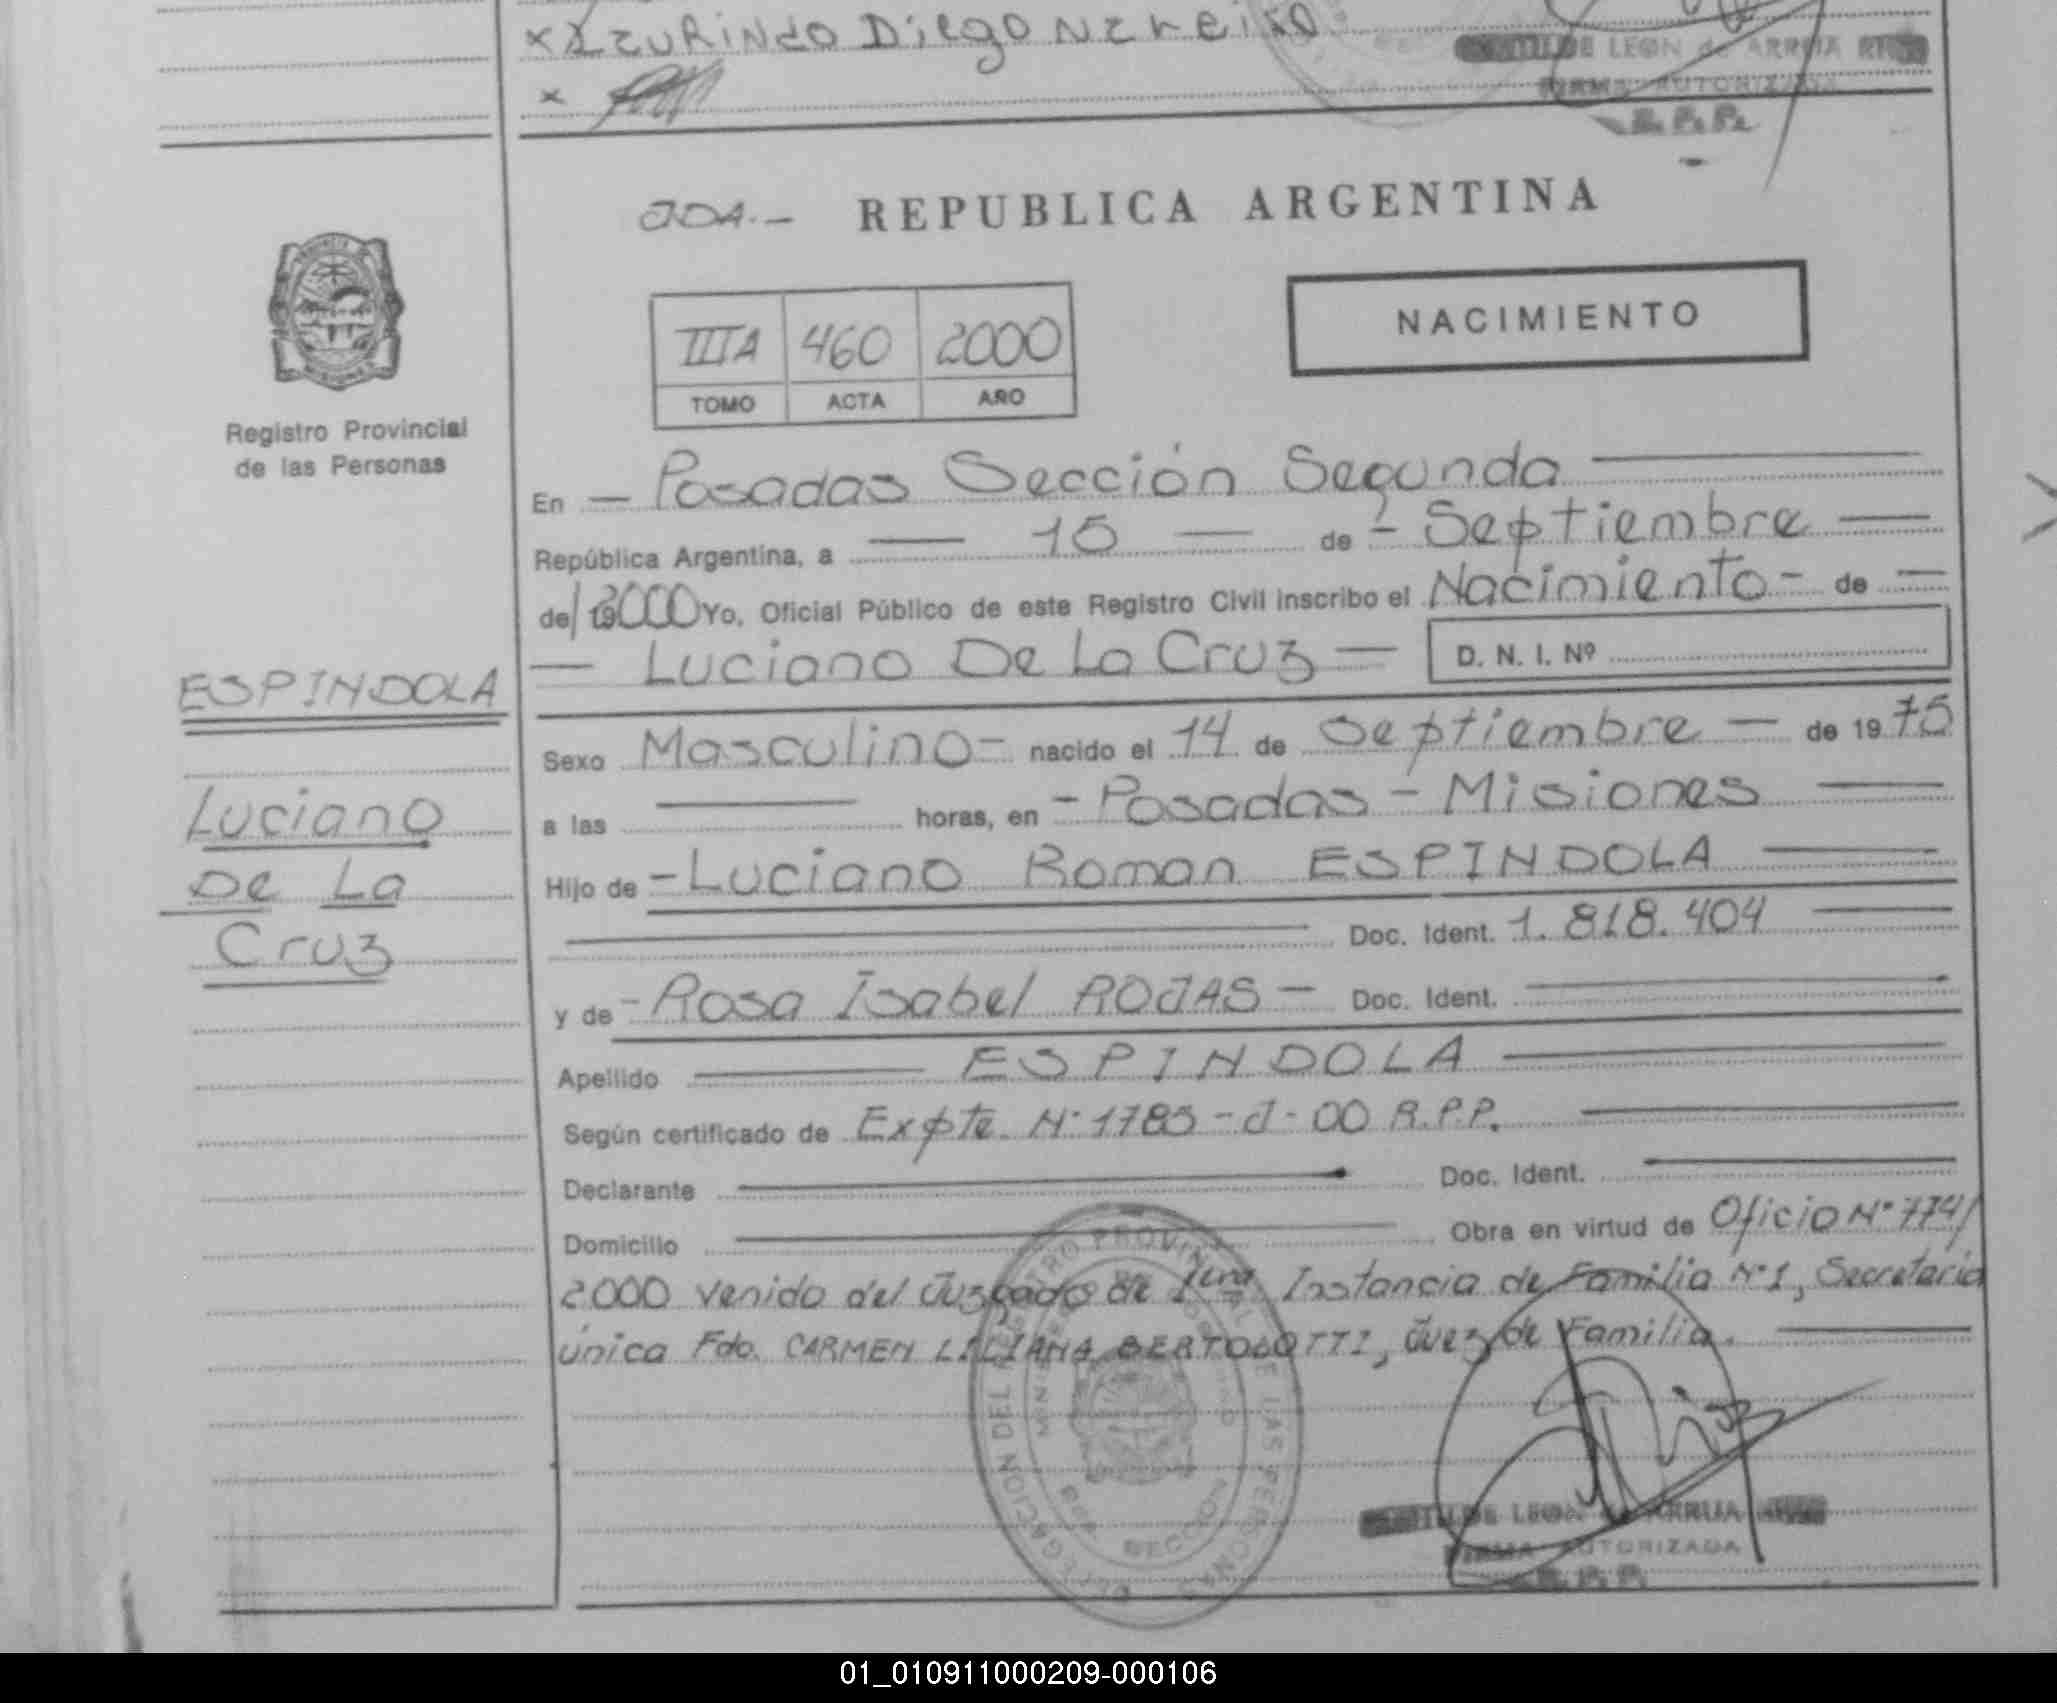 Diego
LEON de ARRUA
FIRMA AUTORIZADA
R. P. P.
JDA.- REPUBLICA ARGENTINA
NACIMIENTO
IIIA 460 2000
TOMO ACTA AÑO
Registro Provincial
de las Personas
En - Posadas Sección Segunda
República Argentina, a 15 de - Septiembre
de 2000 Yo, Oficial Público de este Registro Civil inscribo el Nacimiento - de
Luciano De La Cruz D. N. I. Nº
ESPINDOLA
Luciano
De La
Cruz
Sexo Masculino - nacido el 14 de Septiembre - de 1975
a las horas, en - Posadas - Misiones
Hijo de - Luciano Roman ESPINDOLA
Doc. Ident. 1.818.404
y de - Rosa Isabel ROJAS - Doc. Ident.
Apellido ESPINDOLA
Según certificado de Expte. N° 1785-J-00 R.P.P.
Declarante Doc. Ident.
Domicilio Obra en virtud de Oficio N° 774/
2000 venido del Juzgado de 1era Instancia de Familia N°1, Secretaria
única Fdo. CARMEN LILIANA BERTOLOTTI, Juez de Familia.
DELEGACION DEL REGISTRO PROVINCIAL DE LAS PERSONAS
SECCION
LEON de ARRUA
FIRMA AUTORIZADA
R. P. P.
01_010911000209-000106